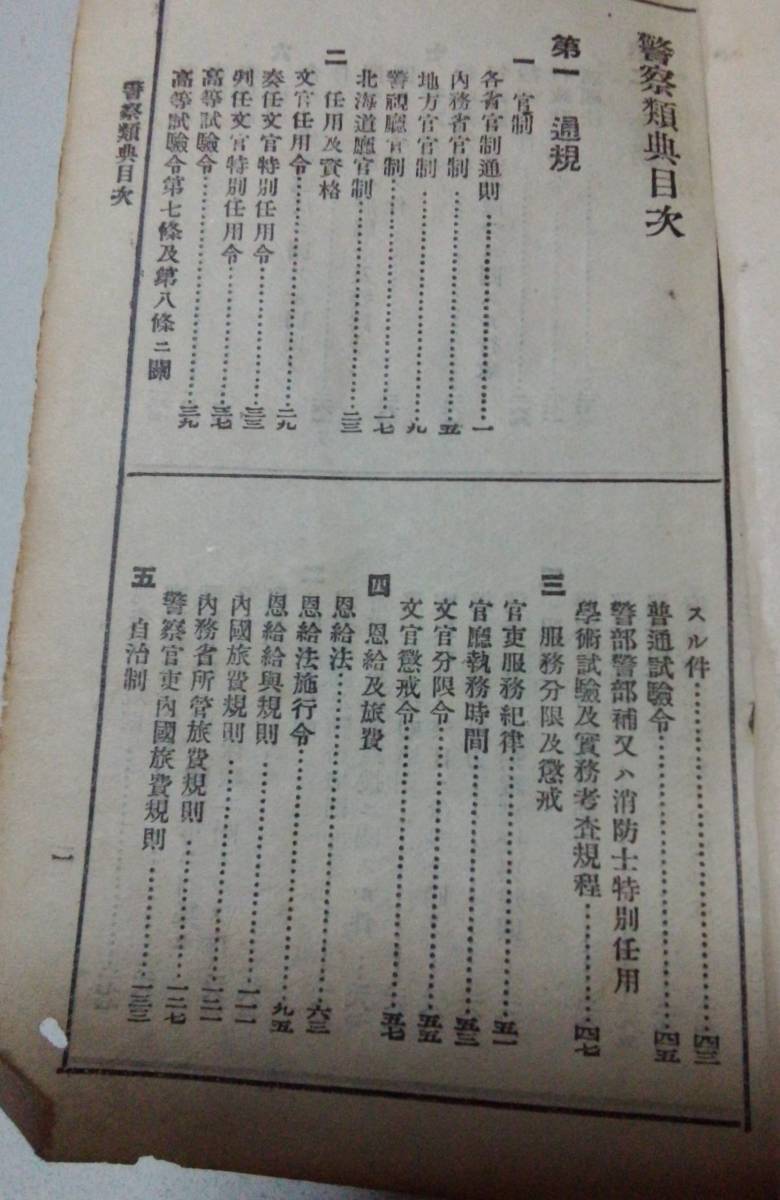 警察類典目次
第一 通規
一 官制
各省官制通則……一
內務省官制……五
地方官官制……九
警視廳官制……一七
北海道廳官制……二三
二 任用及資格
文官任用令……二九
奏任文官特別任用令……三三
判任文官特別任用令……三七
高等試驗令……三九
高等試驗令第七條及第八條ニ關
スル件……四三
普通試驗令……四五
警部警部補又ハ消防士特別任用
學術試驗及實務考査規程……四七
三 服務分限及懲戒
官吏服務紀律……五一
官廳執務時間……五三
文官分限令……五五
文官懲戒令……五七
四 恩給及旅費
恩給法……六三
恩給法施行令……九五
恩給給與規則……一一一
內國旅費規則……一二一
內務省所管旅費規則……一二七
警察官吏內國旅費規則……一三三
五 自治制
警察類典目次
一